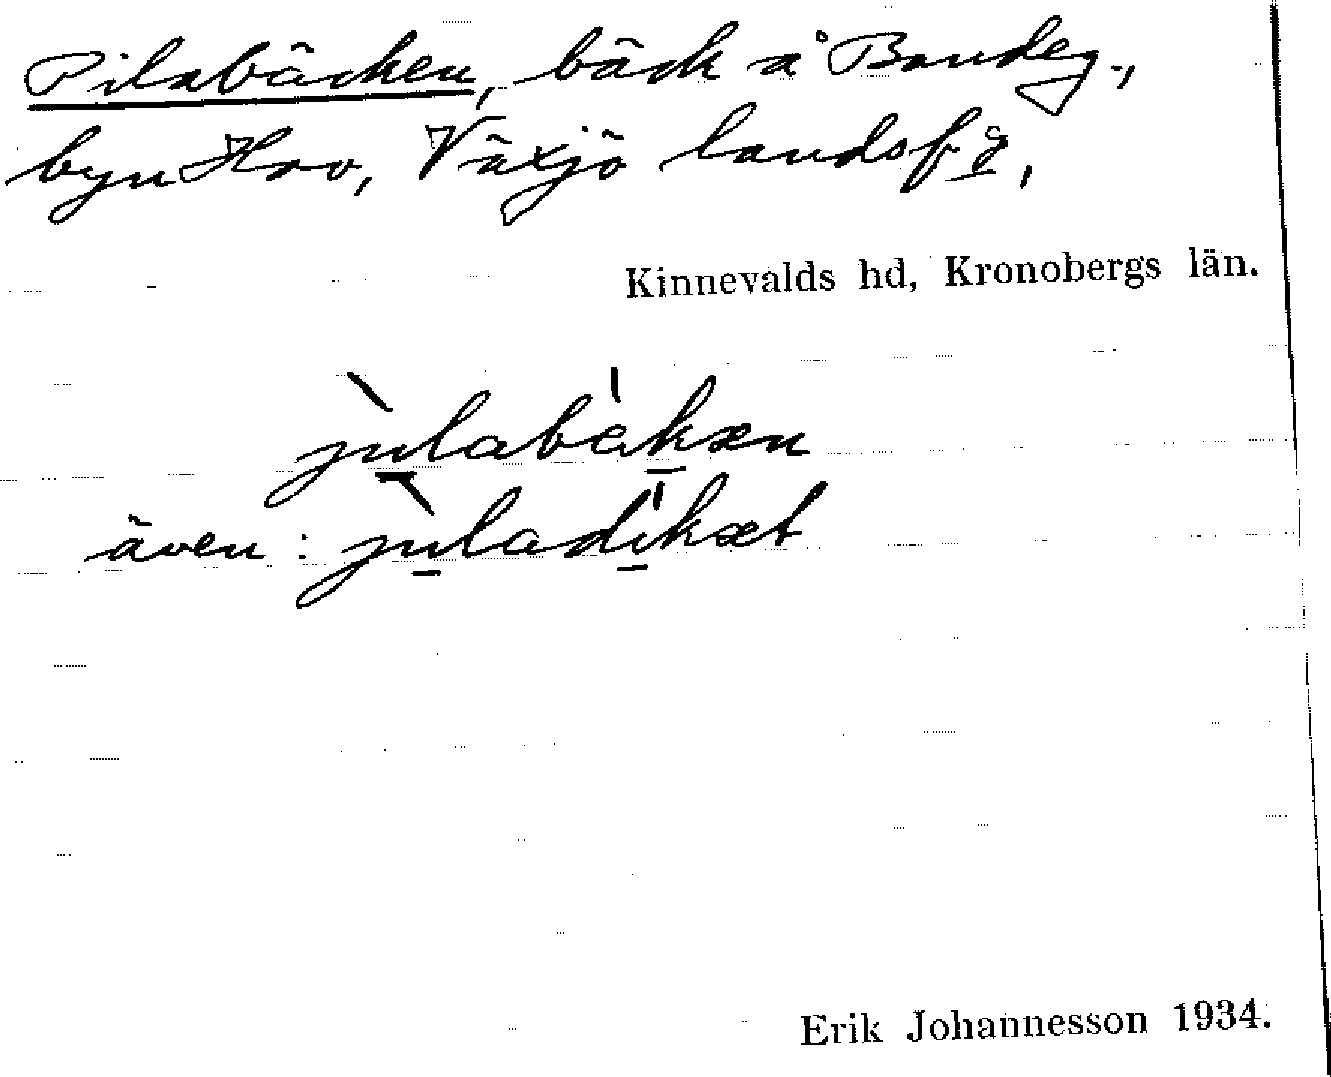 Pilabäcken, bäck å Bondeg.,
byn Hov, Växjö landsf-g,
Kinnevalds hd, Kronobergs län.
pìlabèkæn
även: pìladi̍kæt
Erik Johannesson 1934.